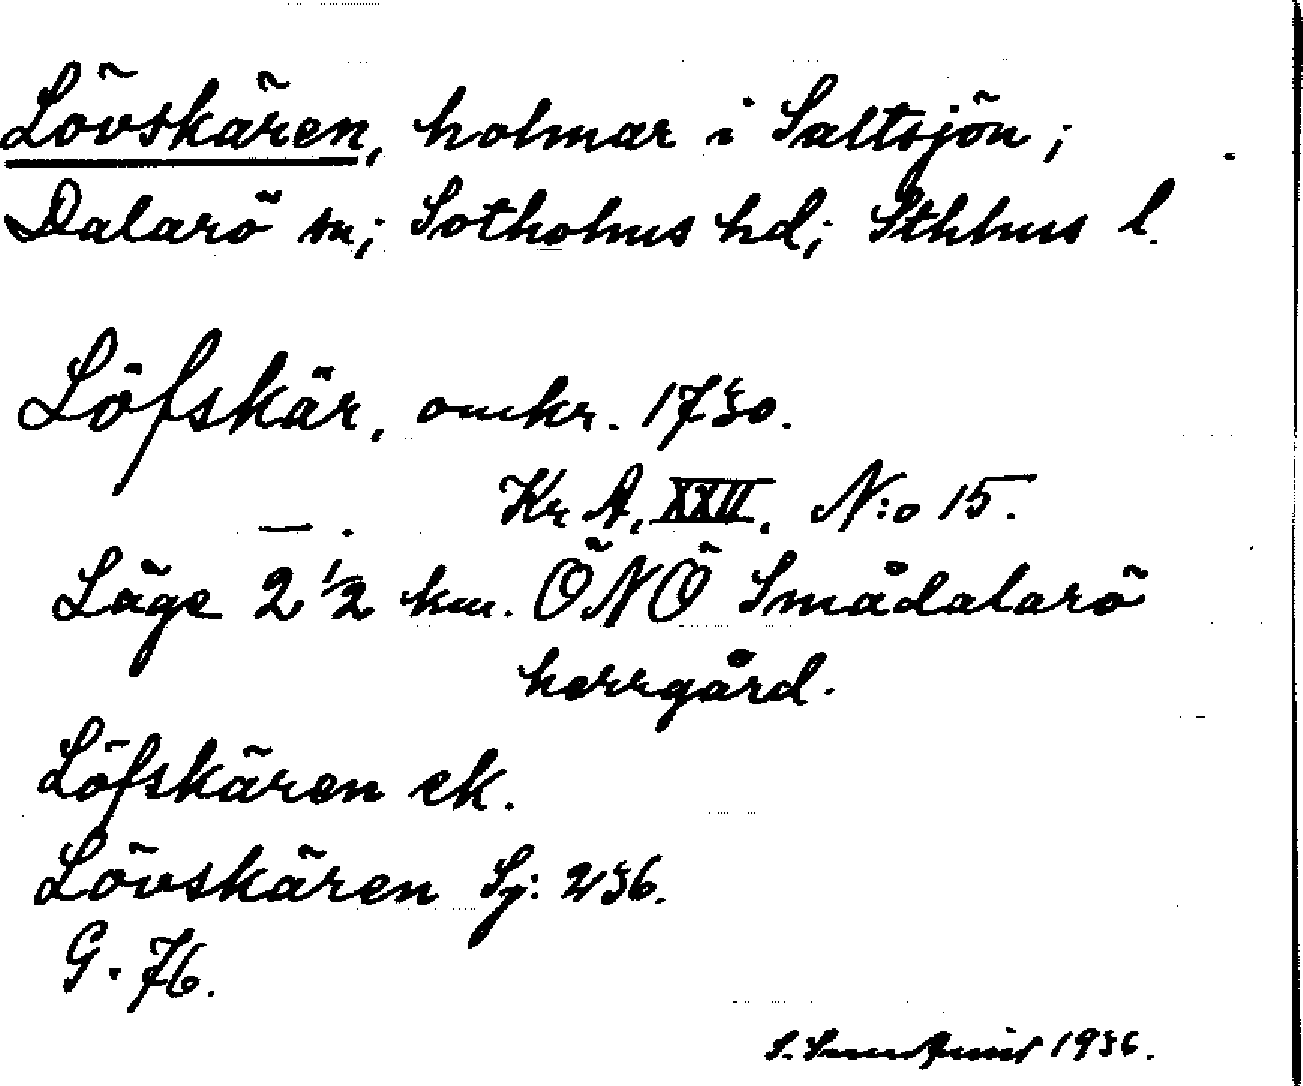 Lövskären, holmar i Saltsjön;
Dalarö sn; Sotholms hd; Sthlms l.
Löfskär, omkr. 1730.
Kr A, XXII, N:o 15.
— .
Läge 2 1/2 km. ÖNÖ Smådalarö
herrgård.
Löfskären ek.
Lövskären Sj: 236.
G. 76.
S. 1936.